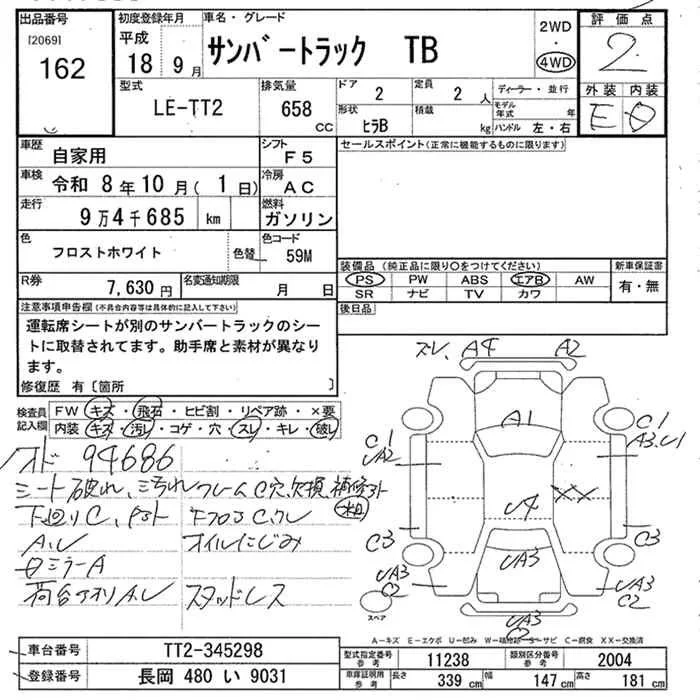 出品番号 初度登録年月 車名・グレード 2WD 評価点
[2069] 平成 サンバートラック TB 4WD 2
162 18 9月
型式 排気量 ドア 2 定員 2人 ディーラー・並行 外装 内装
LE-TT2 658 CC 形状 ヒラB 積載 kg モデル年式 年 E D
ハンドル 左・右
車歴 自家用 シフト F5 セールスポイント(正常に機能するものに限ります)
車検 令和 8年10月(1日) 冷房 AC
走行 9万4千685 km 燃料 ガソリン
色 フロストホワイト 色替 色コード 59M
装備品 (純正品に限り○をつけてください) 新車保証書
R券 7,630円 名変通知期限 月 日 PS PW ABS エアB AW 有・無
SR ナビ TV カワ
注意事項申告欄(不具合内容等は具体的に記入して下さい) 後日品
運転席シートが別のサンバートラックのシー
トに取替されてます。助手席と素材が異なり
ます。
修復歴 有〔箇所 〕
検査員記入欄 FW キズ・飛石・ヒビ割・リペア跡・×要
内装 キズ・汚レ・コゲ・穴・スレ・キレ・破レ
メオド 94686
シート破れ、汚れ フレームC穴、欠損、補修跡
下回りC、
A、U オイルにじみ
ミラーA
荷台 A、U スタッドレス
ズレ、A4 A2
A1
C1 C1
UA2 A3、U1
U4 XX
C3 C3
UA3 UA3 UA3
C2 C2
スペア UA3
A-キズ E-エクボ U-凹み W-補修跡 S-サビ C-腐食 XX-交換済
車台番号 TT2-345298 型式指定番号 参考 11238 類別区分番号 参考 2004
登録番号 長岡 480 い 9031 車庫証明用 参考 長さ 339 cm 幅 147 cm 高さ 181 cm